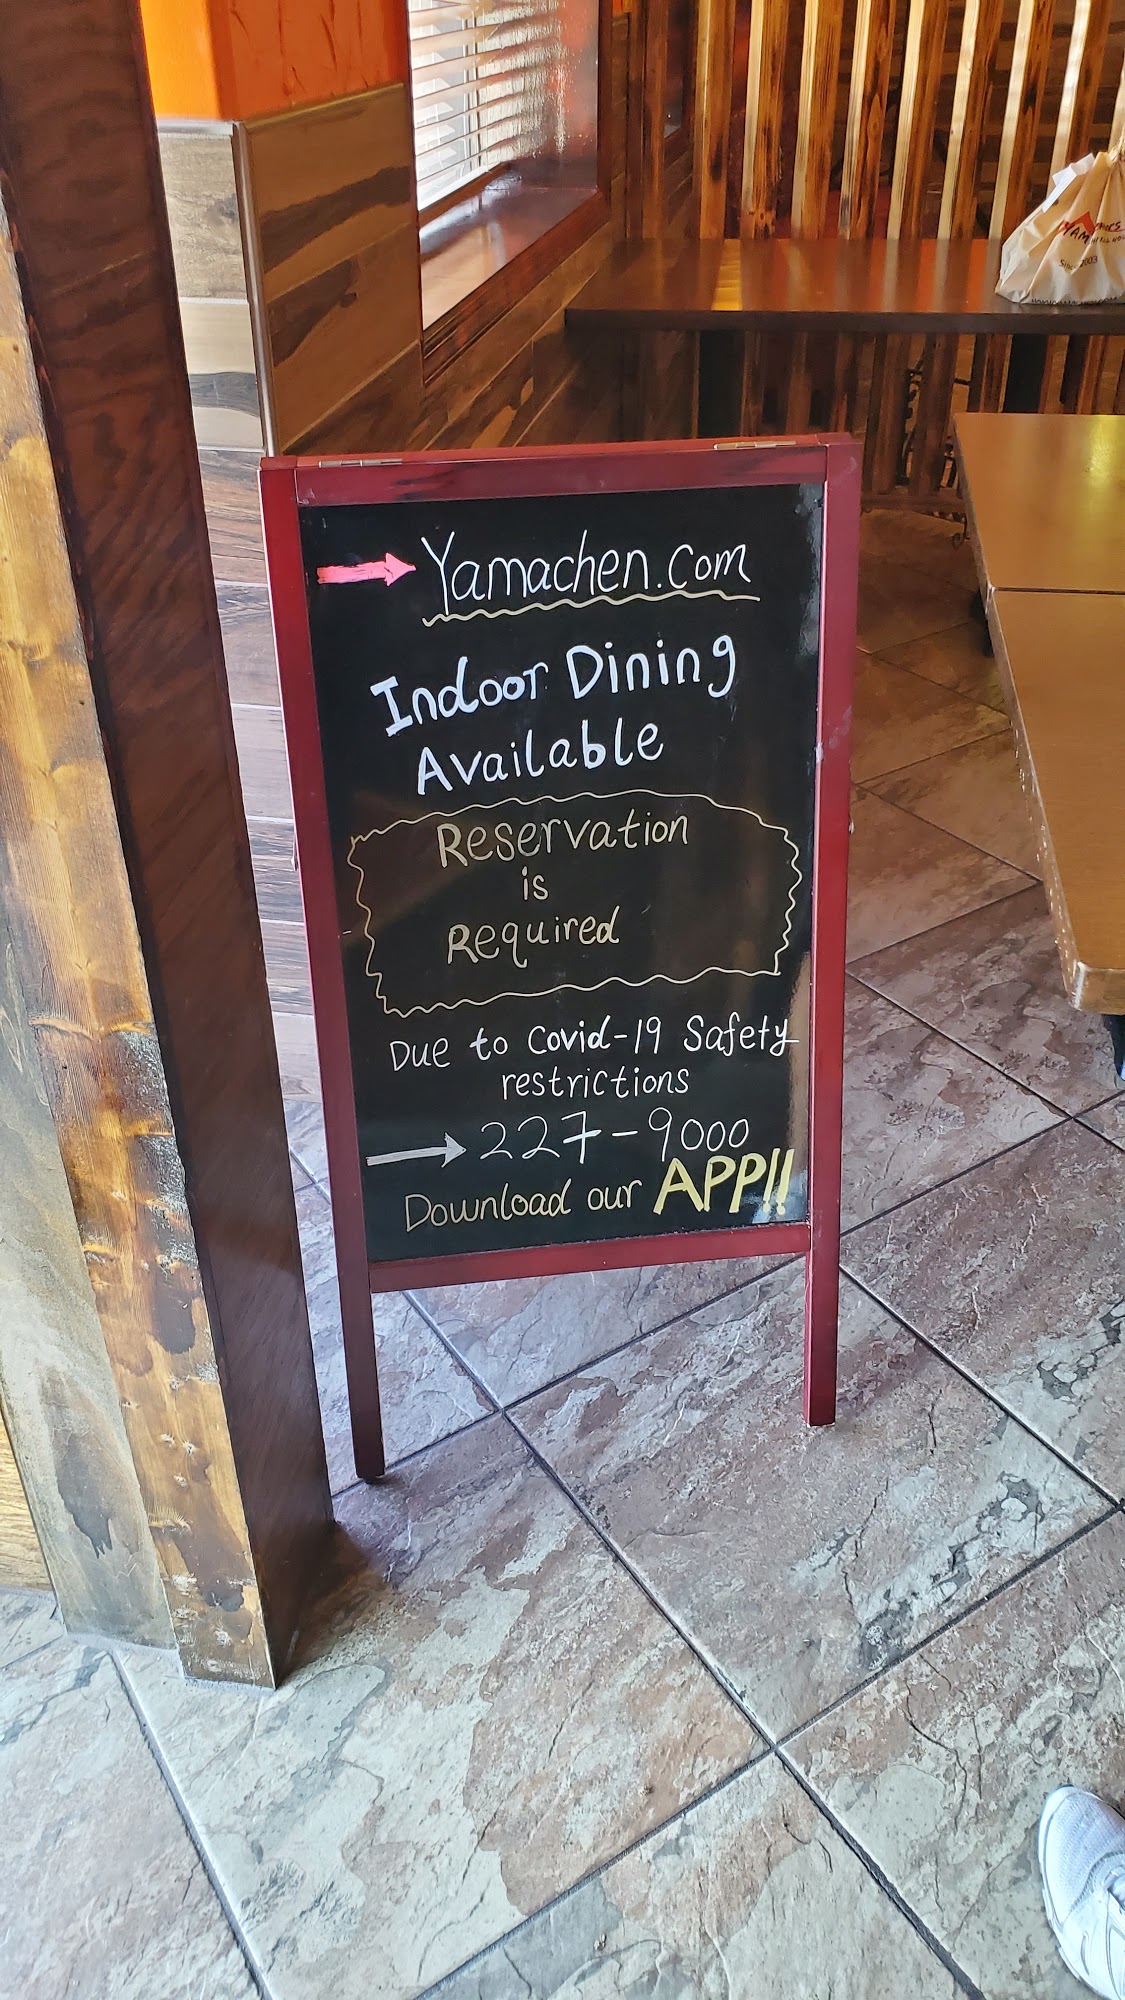 Yamachen.com
Indoor Dining
Available
Reservation
is
Required
Due to Covid-19 Safety
restrictions
227-9000
Download our APP!!
Since 2003